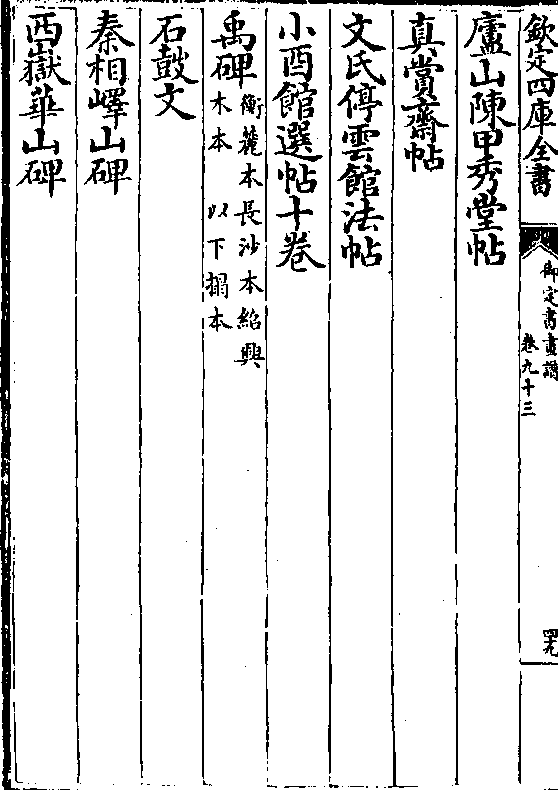 欽定四庫全書
御定書畫譜
卷九十三
四九
廬山陳氏甲秀堂帖
真賞齋帖
文氏停雲館法帖
小酉館選帖十卷
禹碑衡麓本長沙本紹興
木本 以下搨本
石鼓文
秦相嶧山碑
西嶽華山碑